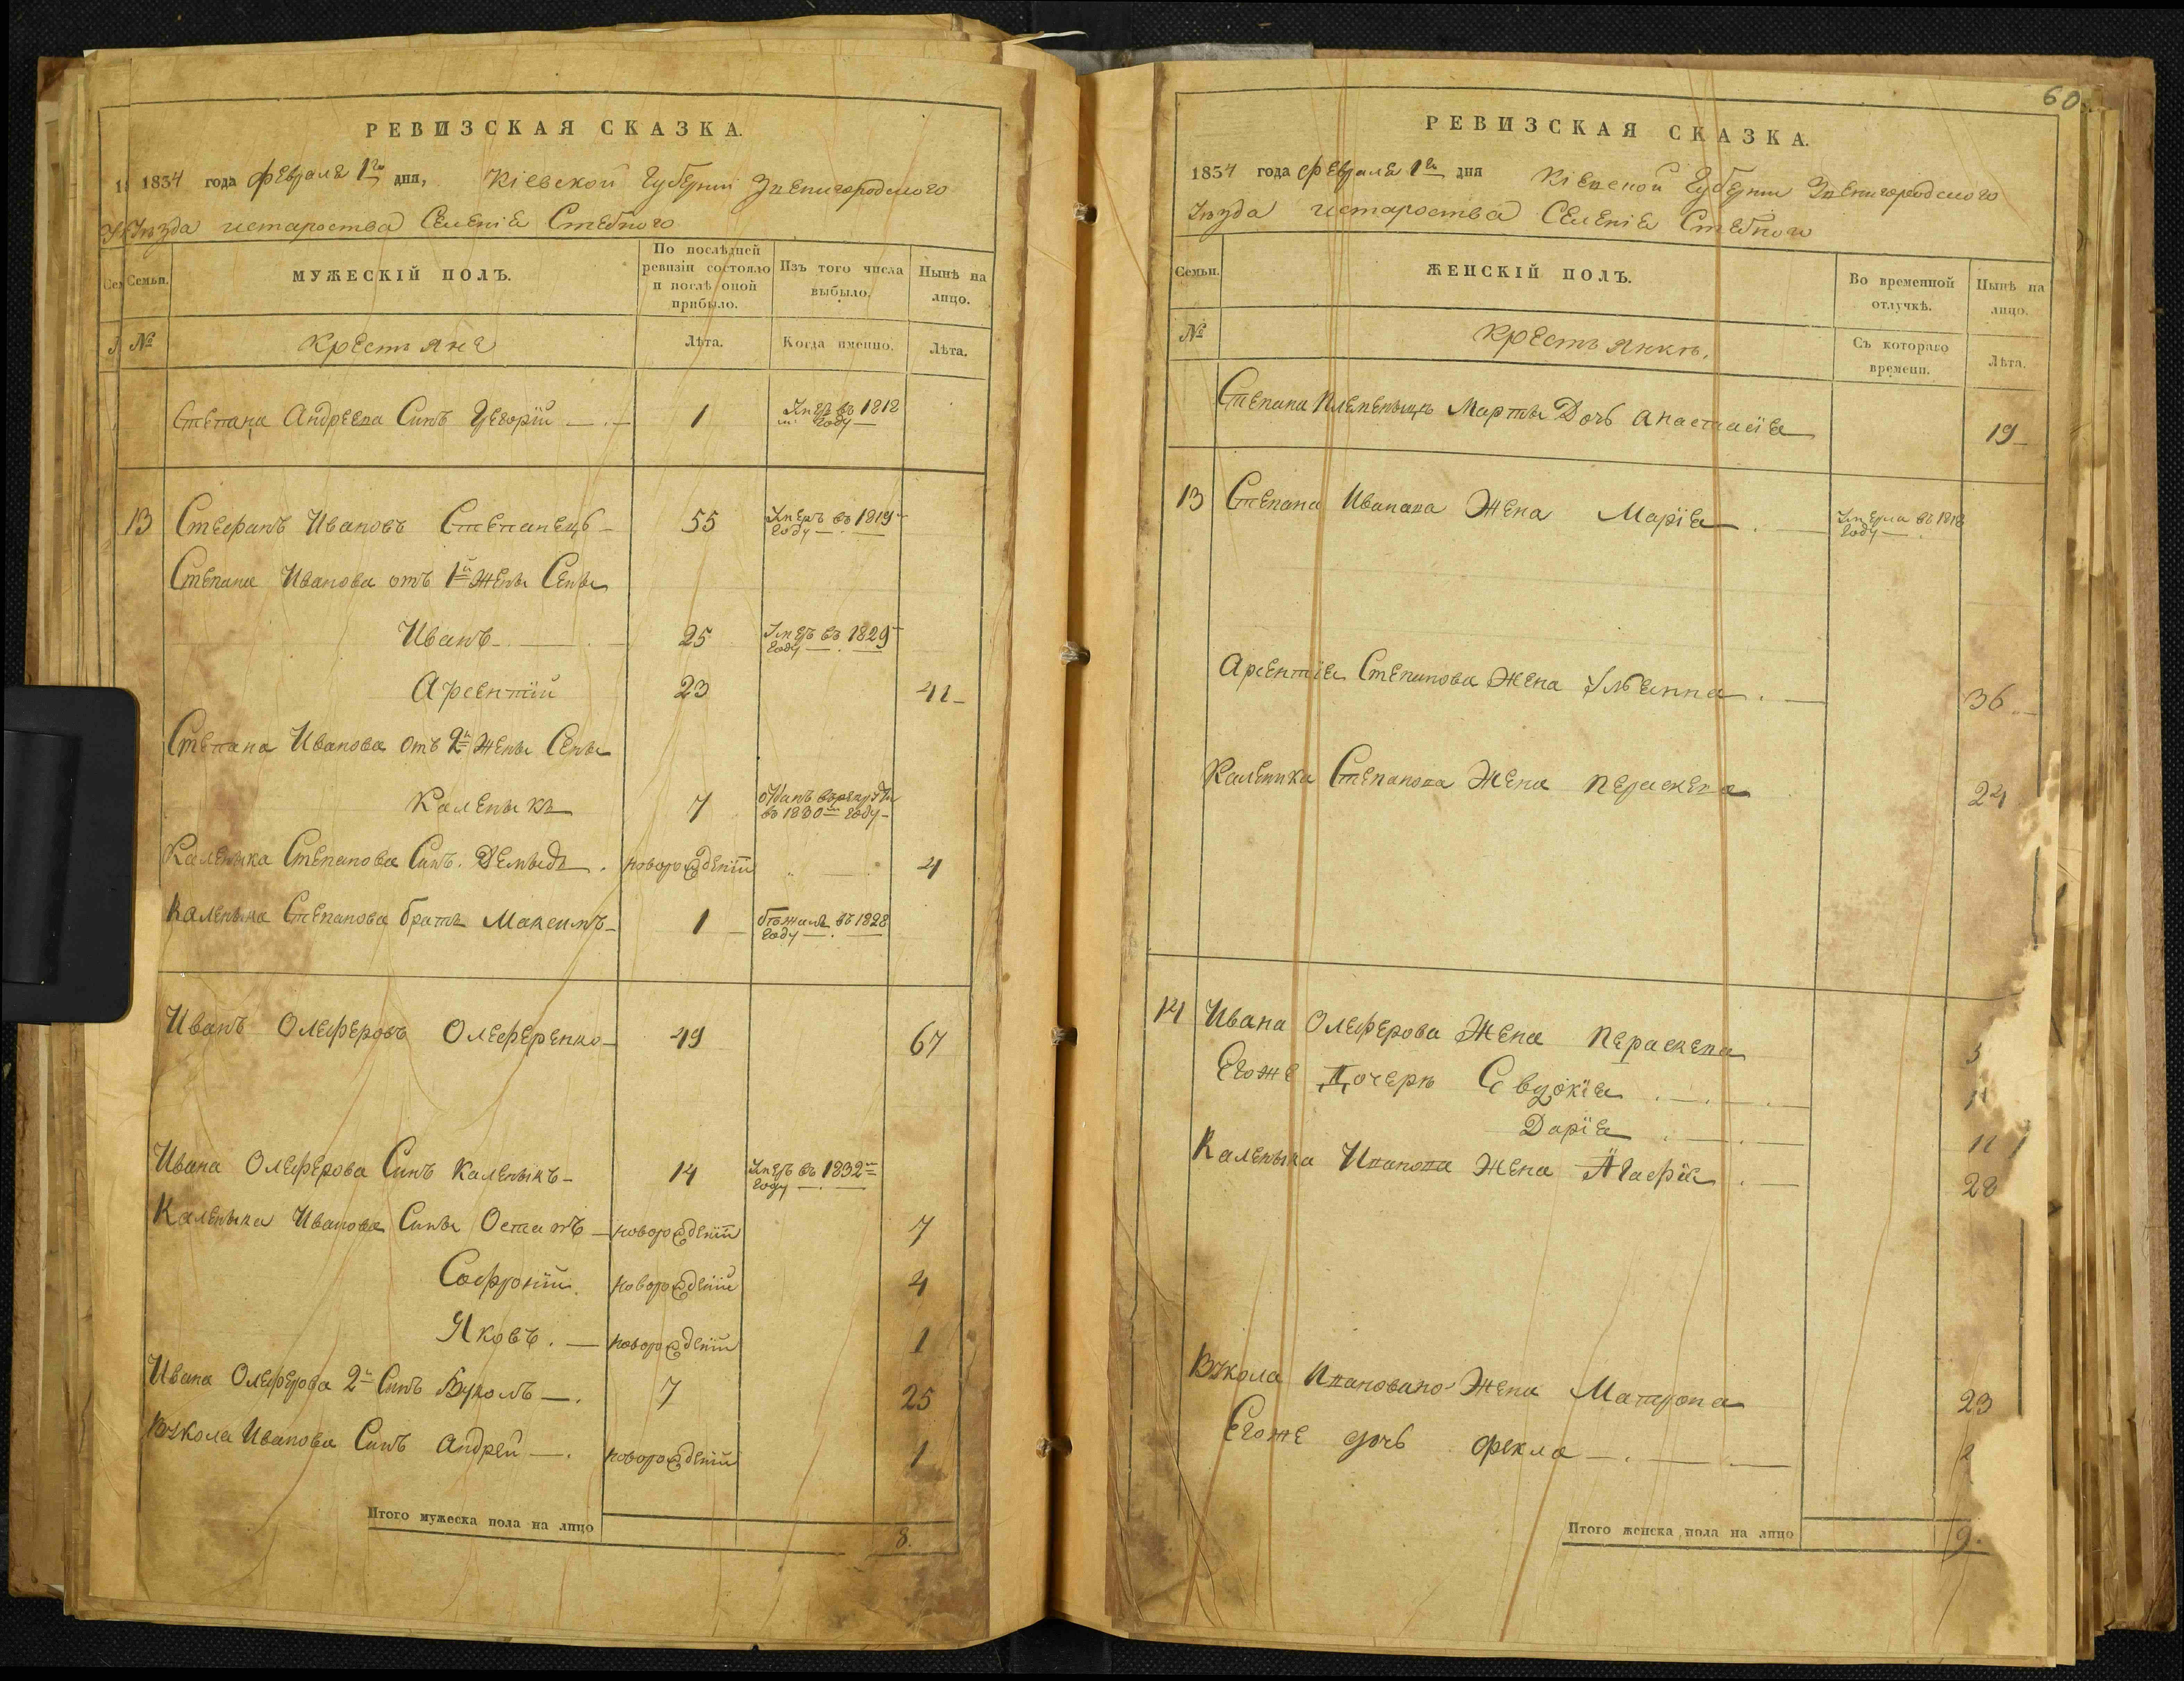 РЕВИЗСКАЯ СКАЗКА.
1834 года Февраля 1го дня, Кіевской Губерніи Звенигородского
Уезда истароства Селенія Стебного
Семьи.
МУЖЕСКІЙ ПОЛЪ.
По послѣдней ревизіи состояло и послѣ оной прибыло.
Изъ того числа выбыло.
Нынѣ на лицо.
№
Крестьяне
Лѣта.
Когда именно.
Лѣта.
Степана Андреева Синъ Георгій 1 Умеръ въ 1812 году
13 Стефанъ Ивановъ Степанецъ 55 Умеръ въ 1819 году
Степана Иванова отъ 1й Жены Сены
Иванъ 25 Умеръ въ 1829 году
Арсентій 23 41
Степана Иванова отъ 2й Жены Сены
Каленыкъ 7 отданъ въ рекруты въ 1830м году
Каленыка Степанова Синъ Демыдъ новорожденій 4
Каленыка Степанова братъ Максимъ 1 бѣжалъ въ 1828 году
Иванъ Олеферовъ Олеференко 49 67
Ивана Олеферова Синъ Каленыкъ 14 Умеръ въ 1832м году
Каленыка Иванова Сины Остапъ новорожденій 7
Софроній новорожденій 4
Яковъ новорожденій 1
Ивана Олеферова 2й Синъ Вуколъ 7 25
Вукола Иванова Синъ Андрей новорожденій 1
Итого мужеска пола на лицо 8.
60
РЕВИЗСКАЯ СКАЗКА.
1834 года Февраля 1го дня Кіевской Губерніи Звенигородского
Уезда истароства Селенія Стебного
Семьи.
ЖЕНСКІЙ ПОЛЪ.
Во временной отлучкѣ.
Нынѣ на лицо.
№
Крестьянкъ.
Съ котораго времени.
Лѣта.
Степана Племеныцѣ Марты Дочь Анастасія 19
13 Степана Иванова Жена Марія Умерла въ 1818 году
Арсентія Степанова Жена Ульянна 36
Каленика Степанова Жена Параскева 24
14 Ивана Олеферова Жена Пераскева
Егоже Дочери Євдокія
Дарія 11
Каленыка Иванова Жена Агафія 28
Вукола Ивановано Жена Матрона 23
Егоже дочь Фекла 2
Итого женска пола на лицо 9.